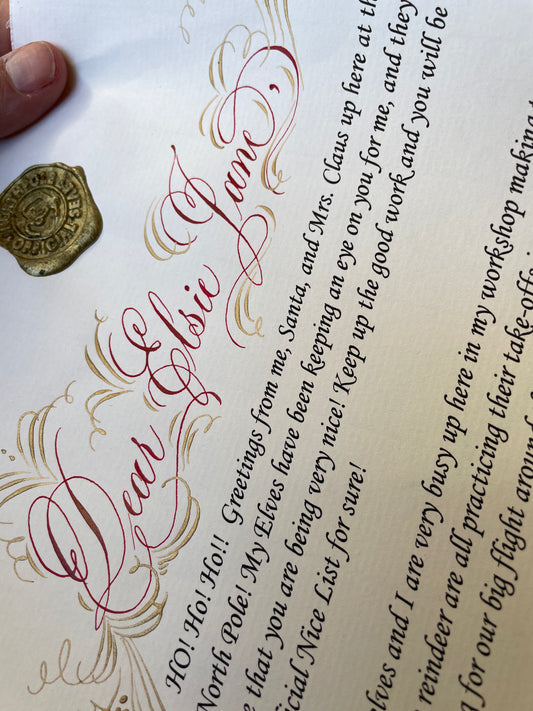 OFFICIAL
Dear Elsie Jane,
HO! Ho! Ho!! Greetings from me, Santa, and Mrs. Claus up here at
North Pole! My Elves have been keeping an eye on you for me, and they
that you are being very nice! Keep up the good work and you will be
Nice List for sure!
and I are very busy up here in my workshop making
reindeer are all practicing their
for our big flight